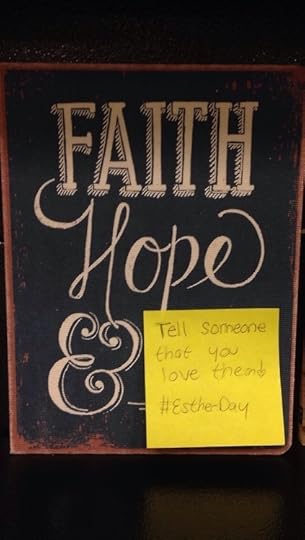 FAITH
Hope
&
Tell someone
that you
love them
#EstherDay